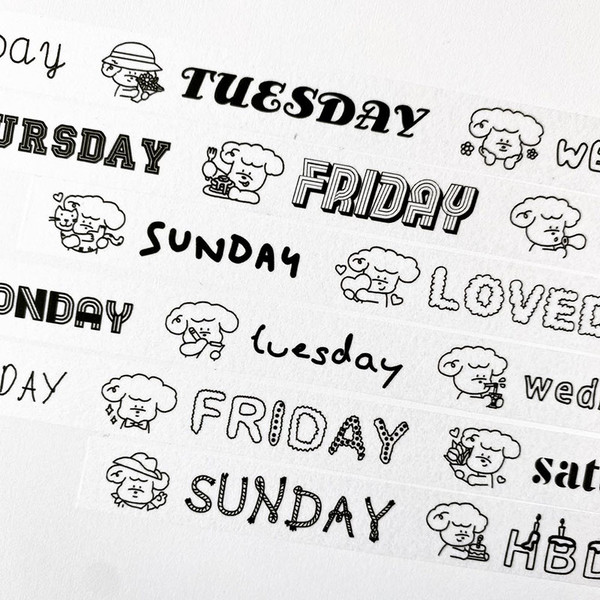 Day TUESDAY WE
URSDAY FRIDAY
SUNDAY LOVED
ONDAY tuesday wed
DAY FRIDAY sat
SUNDAY HBD